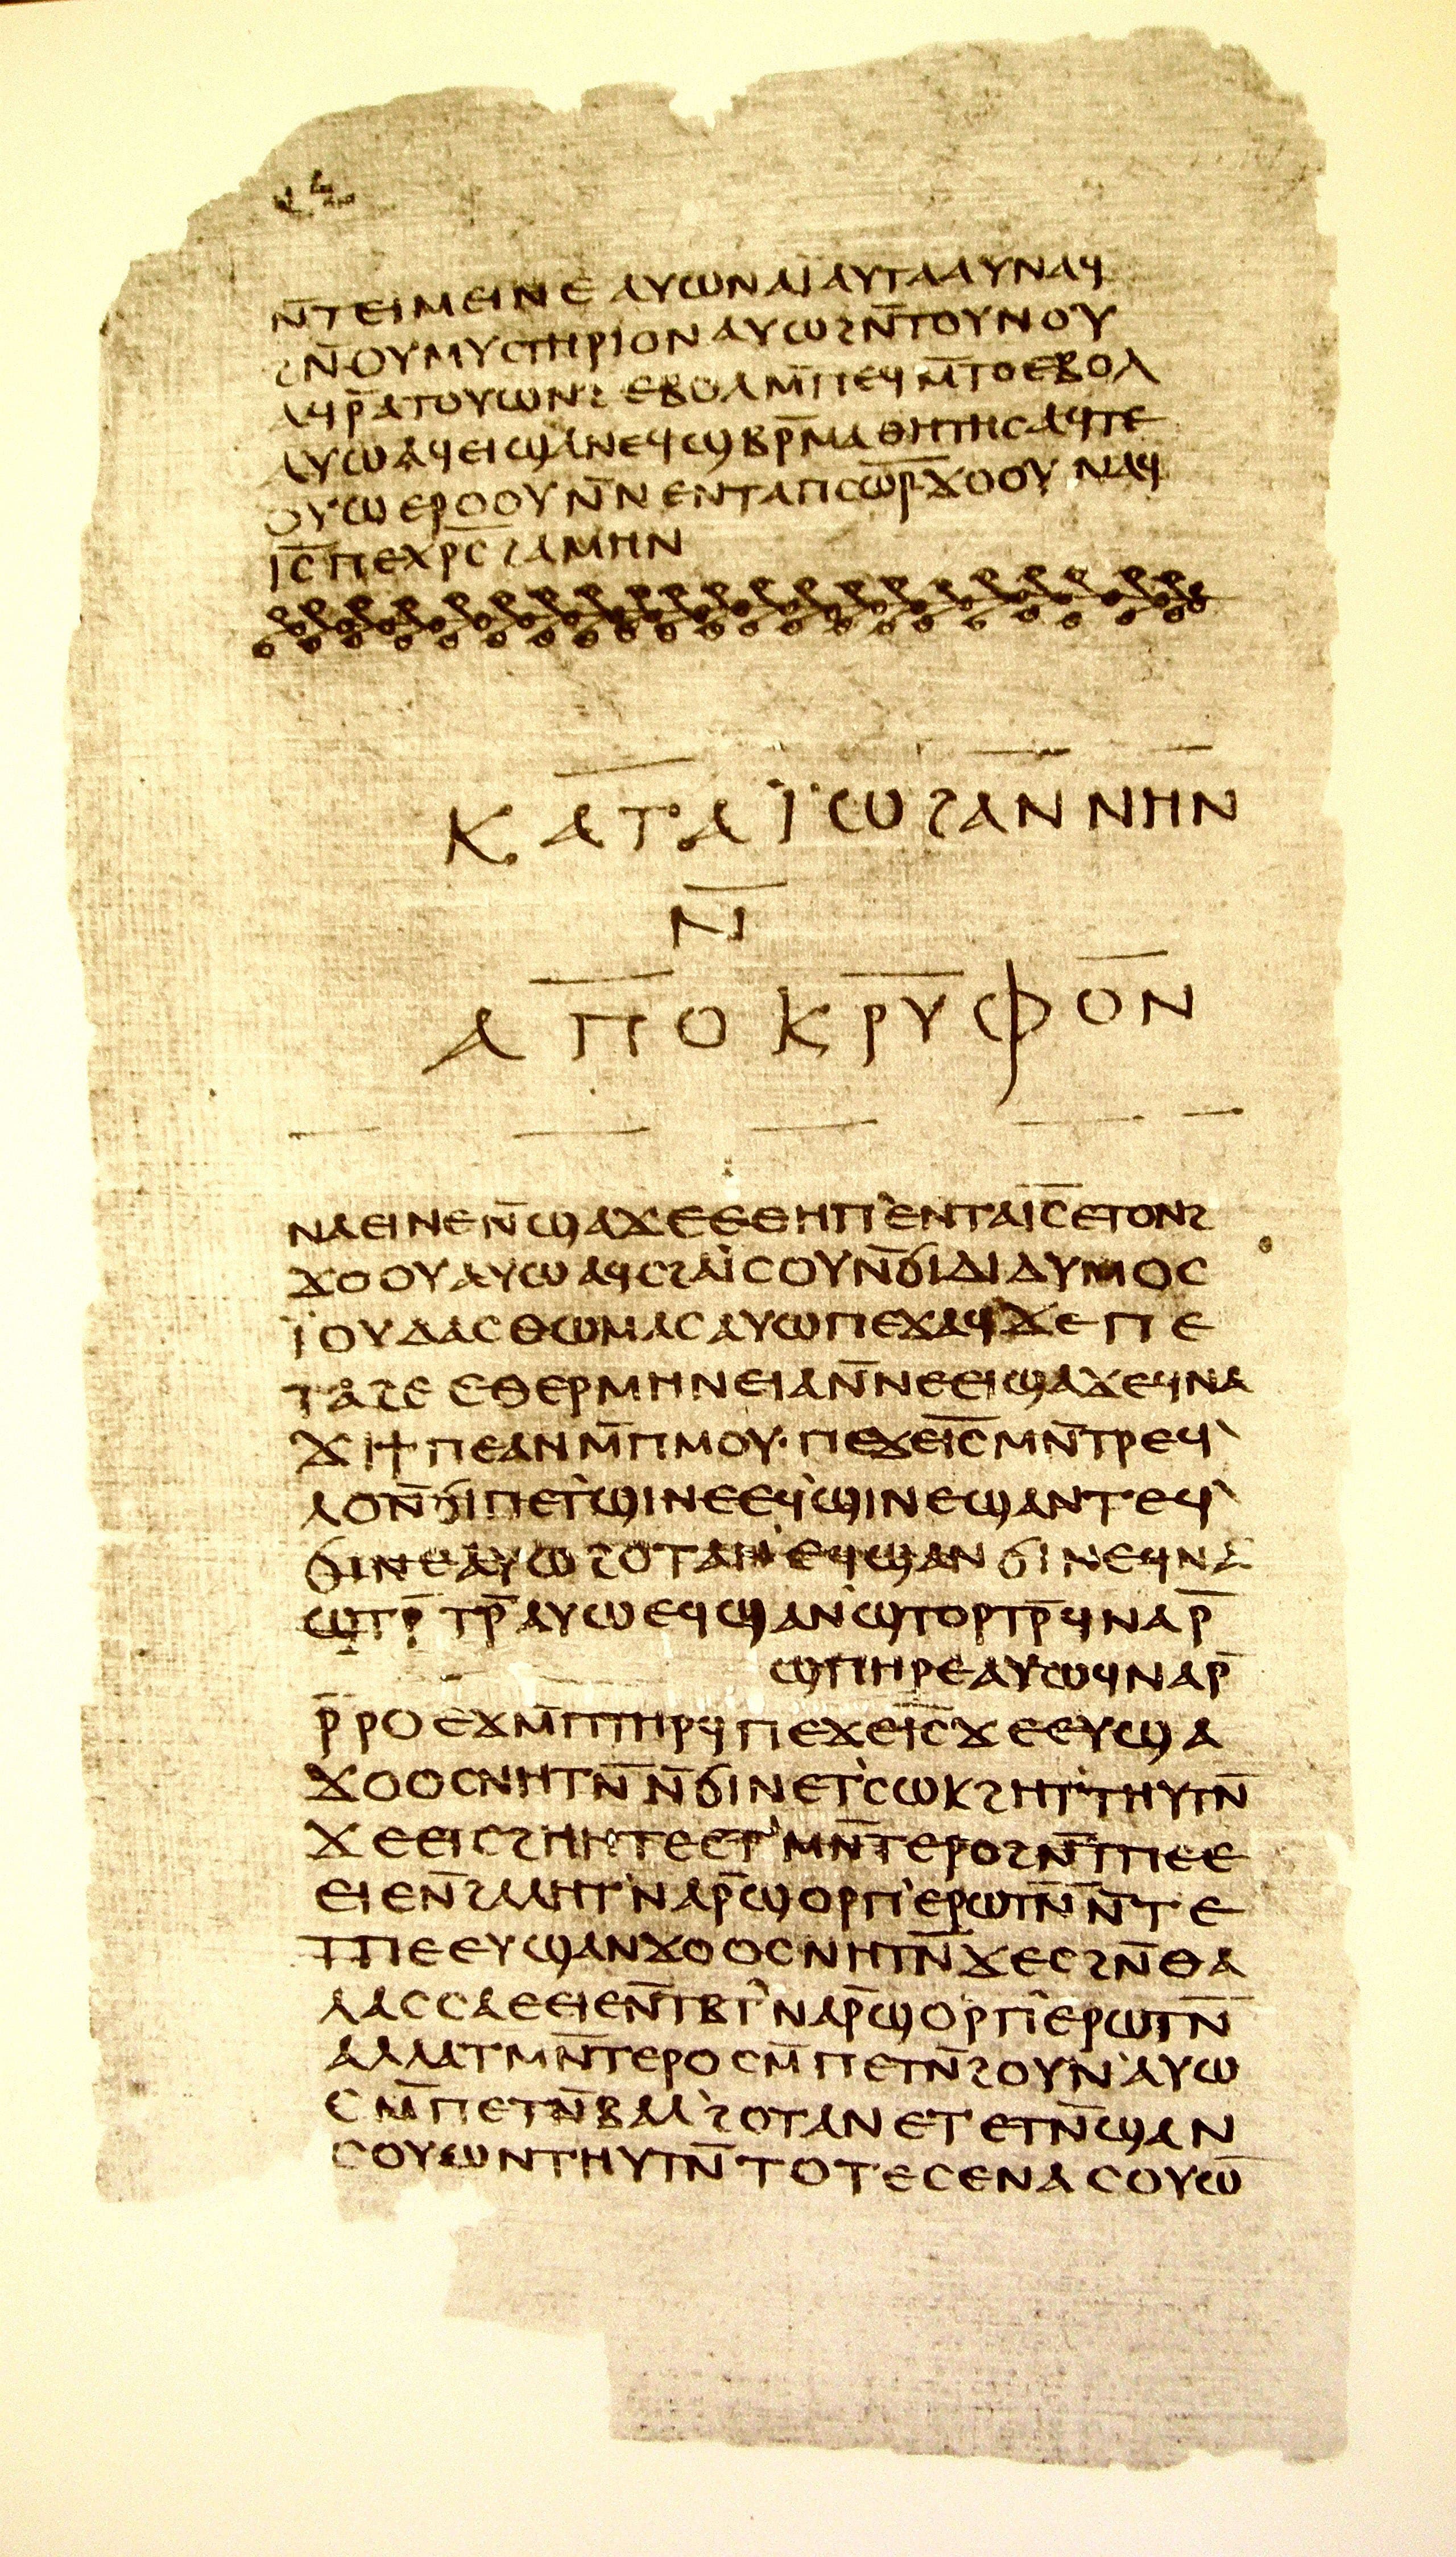 ⲛ̄ⲧⲉⲓⲙⲉⲓⲛⲉ ⲁⲩⲱ ⲛⲁⲓ̈ ⲁⲩⲧⲁⲁⲩ ⲛⲁϥ
ϩⲛ̄ⲟⲩⲙⲩⲥⲧⲏⲣⲓⲟⲛ ⲁⲩⲱ ϩⲛ̄ⲧⲟⲩⲛⲟⲩ
ⲁϥⲣ̄ⲁⲧⲟⲩⲱⲛϩ ⲉⲃⲟⲗ ⲙ̄ⲡⲉϥⲙ̄ⲧⲟ ⲉⲃⲟⲗ
ⲁⲩⲱ ⲁϥⲉⲓ ϣⲁ ⲛⲉϥϣⲃⲣ̄ⲙⲁⲑⲏⲧⲏⲥ ⲁϥⲧⲉ
ⲟⲩⲱ ⲉⲣⲟⲟⲩ ⲛ̄ⲛⲉⲛⲧⲁⲡⲥⲱ̅ⲣ̅ ϫⲟⲟⲩ ⲛⲁϥ
ⲓ̅ⲥ̅ ⲡⲉⲭⲣ̅ⲥ̅ ϩⲁⲙⲏⲛ
ⲕⲁⲧⲁ ⲓ̈ⲱϩⲁⲛⲛⲏⲛ
ⲛ̄
ⲁⲡⲟⲕⲣⲩⲫⲟⲛ
ⲛⲁⲉⲓ ⲛⲉ ⲛ̄ϣⲁϫⲉ ⲉⲑⲏⲡ' ⲉⲛⲧⲁ ⲓ̅ⲥ̅ ⲉⲧⲟⲛϩ
ϫⲟⲟⲩ ⲁⲩⲱ ⲁϥⲥϩⲁⲓ̈ⲥⲟⲩ ⲛ̄ϭⲓ ⲇⲓⲇⲩⲙⲟⲥ
ⲓ̈ⲟⲩⲇⲁⲥ ⲑⲱⲙⲁⲥ ⲁⲩⲱ ⲡⲉϫⲁϥ ϫⲉ ⲡⲉ
ⲧⲁϩⲉ ⲉⲑⲉⲣⲙⲏⲛⲉⲓⲁ ⲛ̄ⲛⲉⲉⲓϣⲁϫⲉ ϥⲛⲁ
ϫⲓϯⲡⲉ ⲁⲛ ⲙ̄ⲡⲙⲟⲩ· ⲡⲉϫⲉ ⲓ̅ⲥ̅ ⲙⲛ̄ⲧⲣⲉϥ'
ⲗⲟ ⲛ̄ϭⲓ ⲡⲉⲧ'ϣⲓⲛⲉ ⲉϥ'ϣⲓⲛⲉ ϣⲁⲛⲧⲉϥ'
ϭⲓⲛⲉ ⲁⲩⲱ ϩⲟⲧⲁⲛ' ⲉϥϣⲁⲛϭⲓⲛⲉ ϥⲛⲁ
ϣⲧⲣ̄ⲧⲣ̄ ⲁⲩⲱ ⲉϥϣⲁⲛ'ϣⲧⲟⲣⲧⲣ̄ ϥⲛⲁⲣ̄
ϣⲡⲏⲣⲉ ⲁⲩⲱ ϥⲛⲁⲣ̄
ⲣ̄ⲣⲟ ⲉϫⲙ̄ ⲡⲧⲏⲣϥ ⲡⲉϫⲉ ⲓ̅ⲥ̅ ϫⲉ ⲉⲩϣⲁ
ϫⲟⲟⲥ ⲛⲏⲧⲛ̄ ⲛ̄ϭⲓ ⲛⲉⲧ'ⲥⲱⲕ ϩⲏⲧ' ⲧⲏⲩⲧⲛ̄
ϫⲉ ⲉⲓⲥϩⲏⲏⲧⲉ ⲉⲧ'ⲙⲛ̄ⲧⲉⲣⲟ ϩⲛ̄ ⲧⲡⲉ ⲉ
ⲉⲓⲉ ⲛ̄ϩⲁⲗⲏⲧ' ⲛⲁⲣ̄ϣⲟⲣⲡ' ⲉⲣⲱⲧⲛ̄ ⲛ̄ⲧⲉ
ⲧⲡⲉ ⲉⲩϣⲁⲛϫⲟⲟⲥ ⲛⲏⲧⲛ̄ ϫⲉ ⲥϩⲛ̄ ⲑⲁ
ⲗⲁⲥⲥⲁ ⲉⲉⲓⲉ ⲛ̄ⲧⲃⲧ' ⲛⲁⲣ̄ϣⲟⲣⲡ' ⲉⲣⲱⲧⲛ̄
ⲁⲗⲗⲁ ⲧⲙⲛ̄ⲧⲉⲣⲟ ⲥⲙ̄ⲡⲉⲧⲛ̄ϩⲟⲩⲛ' ⲁⲩⲱ
ⲥⲙ̄ⲡⲉⲧⲛ̄ⲃⲁⲗ' ϩⲟⲧⲁⲛ ⲉⲧⲉⲧⲛ̄ϣⲁⲛ
ⲥⲟⲩⲱⲛ ⲧⲏⲩⲧⲛ̄ ⲧⲟⲧⲉ ⲥⲉⲛⲁⲥⲟⲩⲱ̅